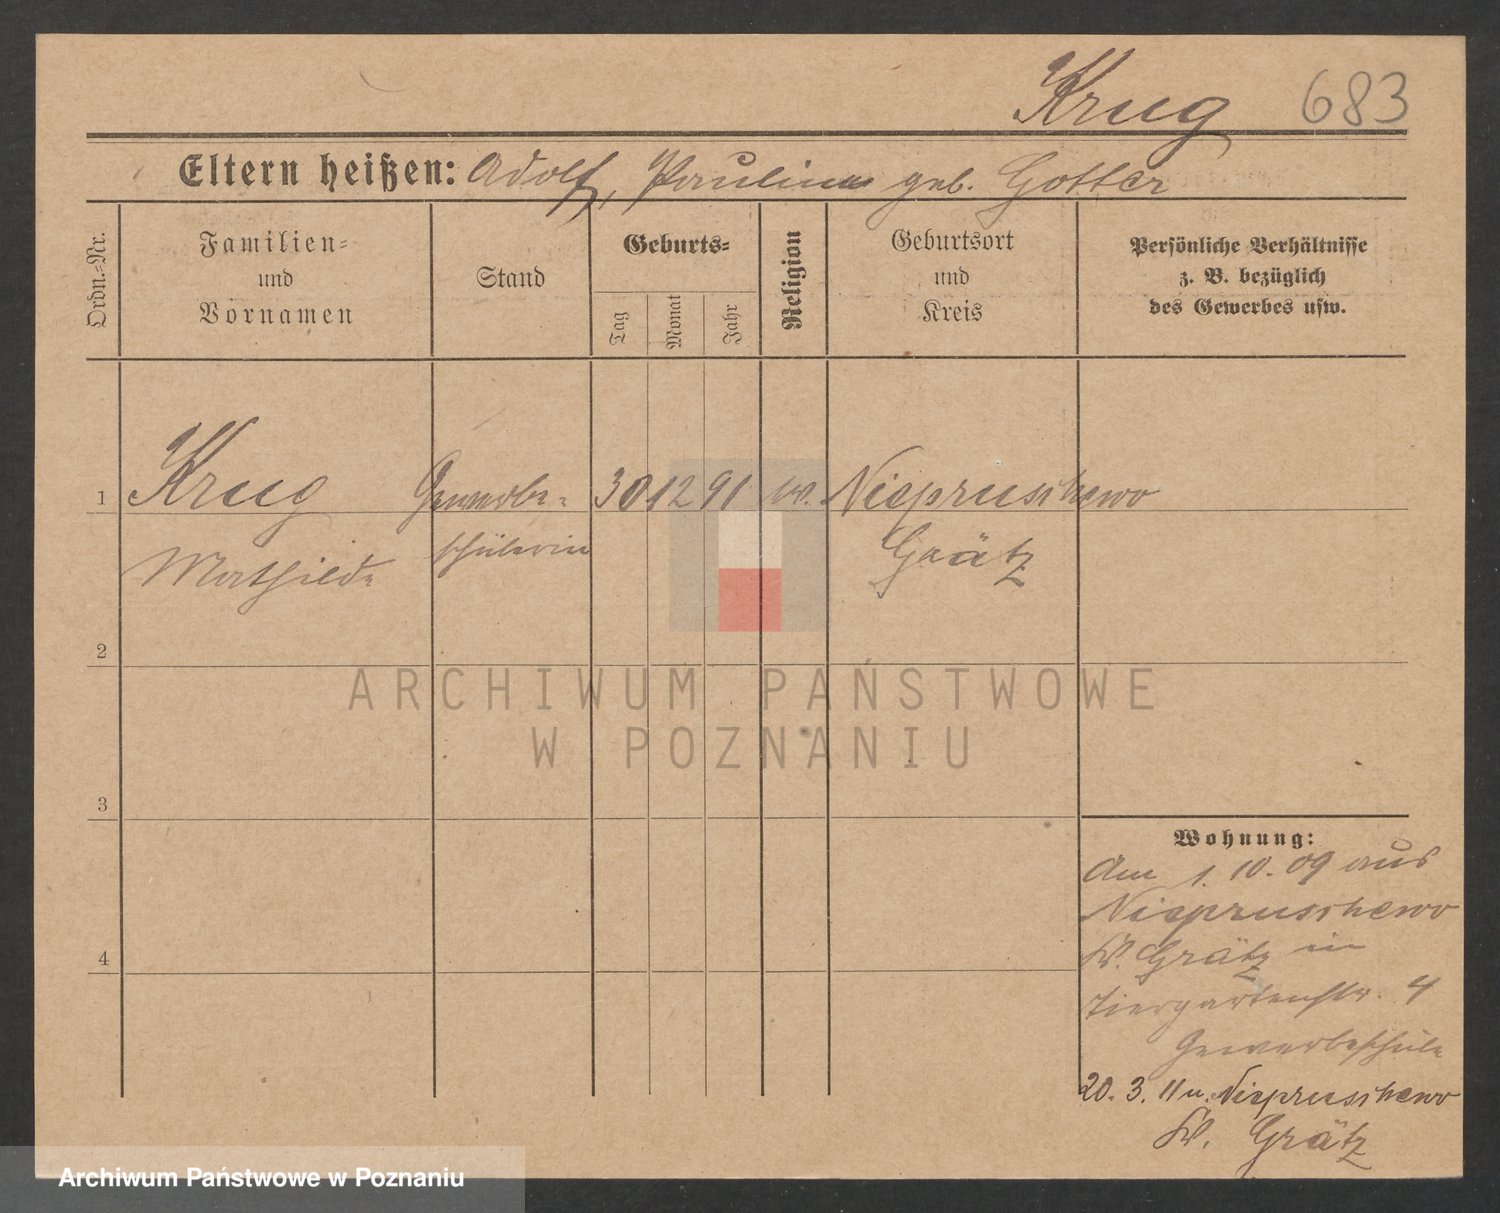 Krug 683
Eltern heißen: Adolf, Pauline geb. Gotter
Ordn.-Nr.
Familien-
und
Vornamen
Stand
Geburts-
Tag
Monat
Jahr
Religion
Geburtsort
und
Kreis
Persönliche Verhältnisse
z. B. bezüglich
des Gewerbes usw.
1 Krug Gewerbe- 30 12 91 ev. Niepruschewo
Mathilde schülerin Grätz
2
3
4
Wohnung:
Am 1. 10. 09 aus
Niepruschewo
Kr. Grätz in
Tiergartenstr. 4
Gewerbeschule
20. 3. 11 n. Niepruschewo
Kr. Grätz
ARCHIWUM PAŃSTWOWE
W POZNANIU
Archiwum Państwowe w Poznaniu